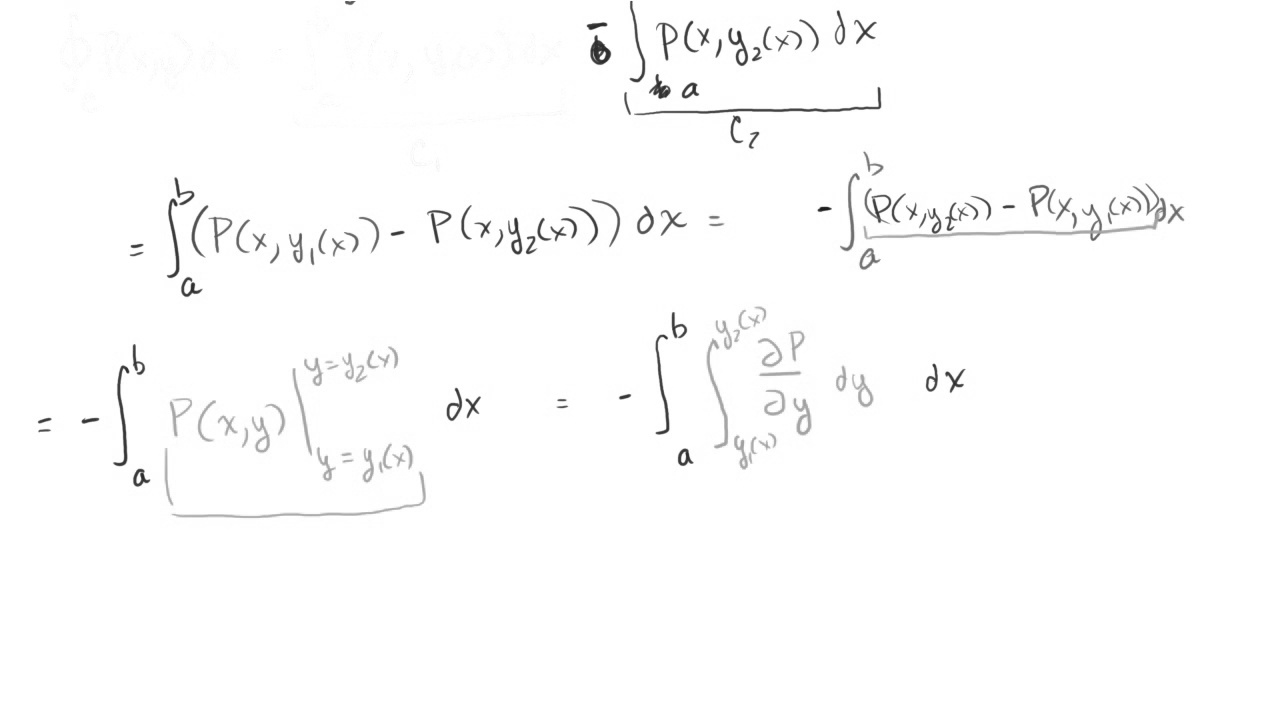 ∮_C P(x,y) dx = ∫_a P(x, y_1(x)) dx - ∫_a P(x, y_2(x)) dx
C_1 C_2
= ∫_a^b (P(x, y_1(x)) - P(x, y_2(x))) dx = - ∫_a^b (P(x, y_2(x)) - P(x, y_1(x))) dx
= - ∫_a^b P(x,y) |_{y = y_1(x)}^{y = y_2(x)} dx = - ∫_a^b ∫_{y_1(x)}^{y_2(x)} ∂P/∂y dy dx